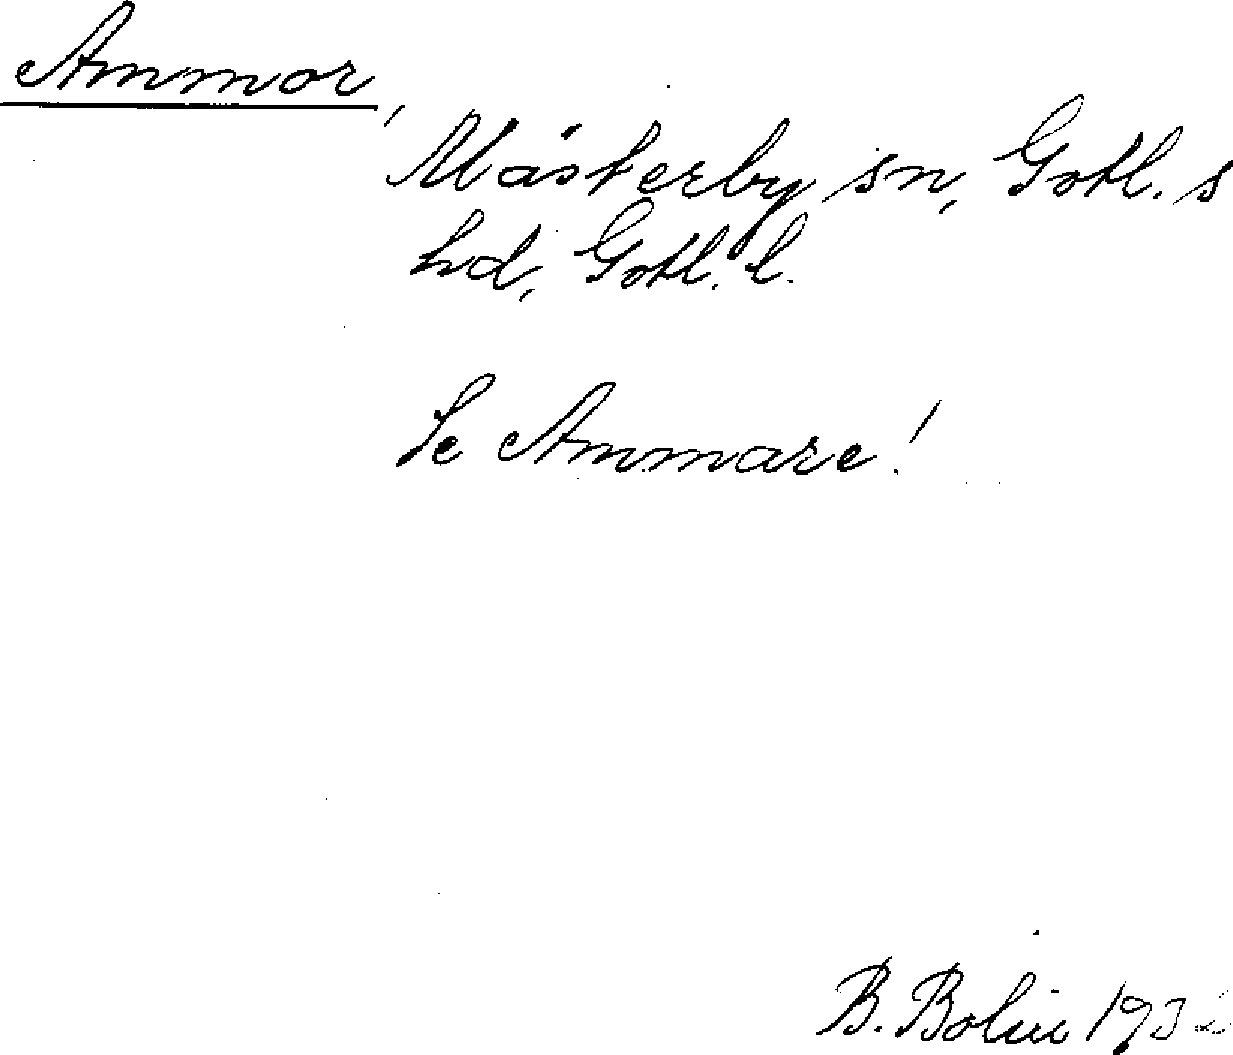 Ammor,
Mästerby sn, Gotl. s
hd, Gotl. l.
Se Ammare!
B. Bolin